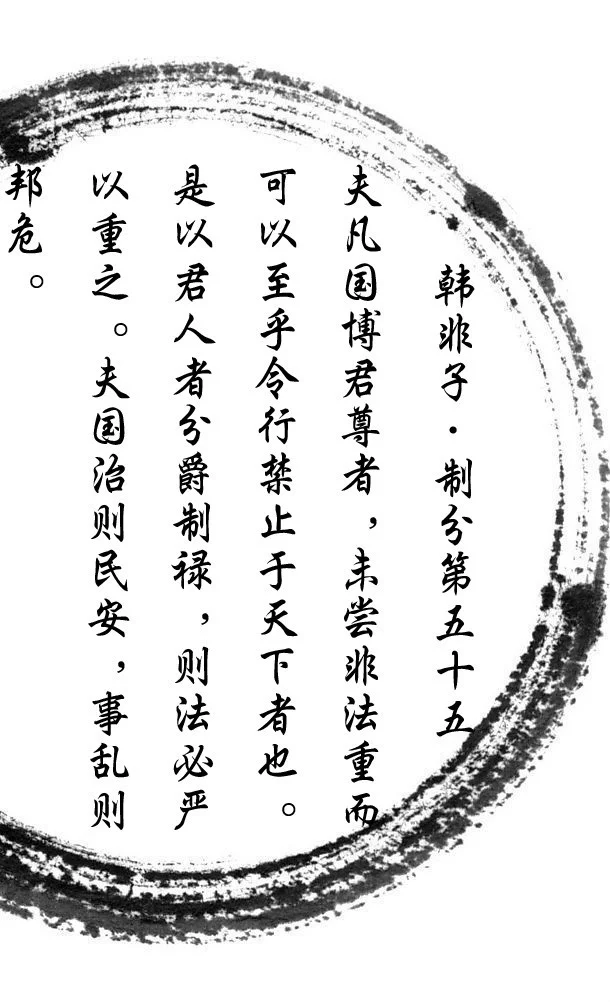 韩非子·制分第五十五
夫凡国博君尊者，未尝非法重而
可以至乎令行禁止于天下者也。
是以君人者分爵制禄，则法必严
以重之。夫国治则民安，事乱则
邦危。